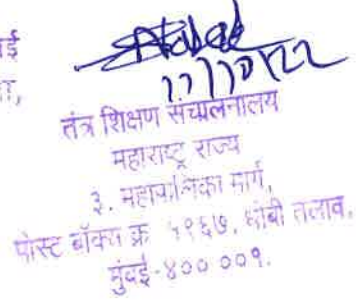 ई
ा,
17/10/22
तंत्र शिक्षण संचालनालय
महाराष्ट्र राज्य
३. महापालिका मार्ग,
पोस्ट बॉक्स क्र १९६७, धोबी तलाव,
मुंबई-४०० ००१.